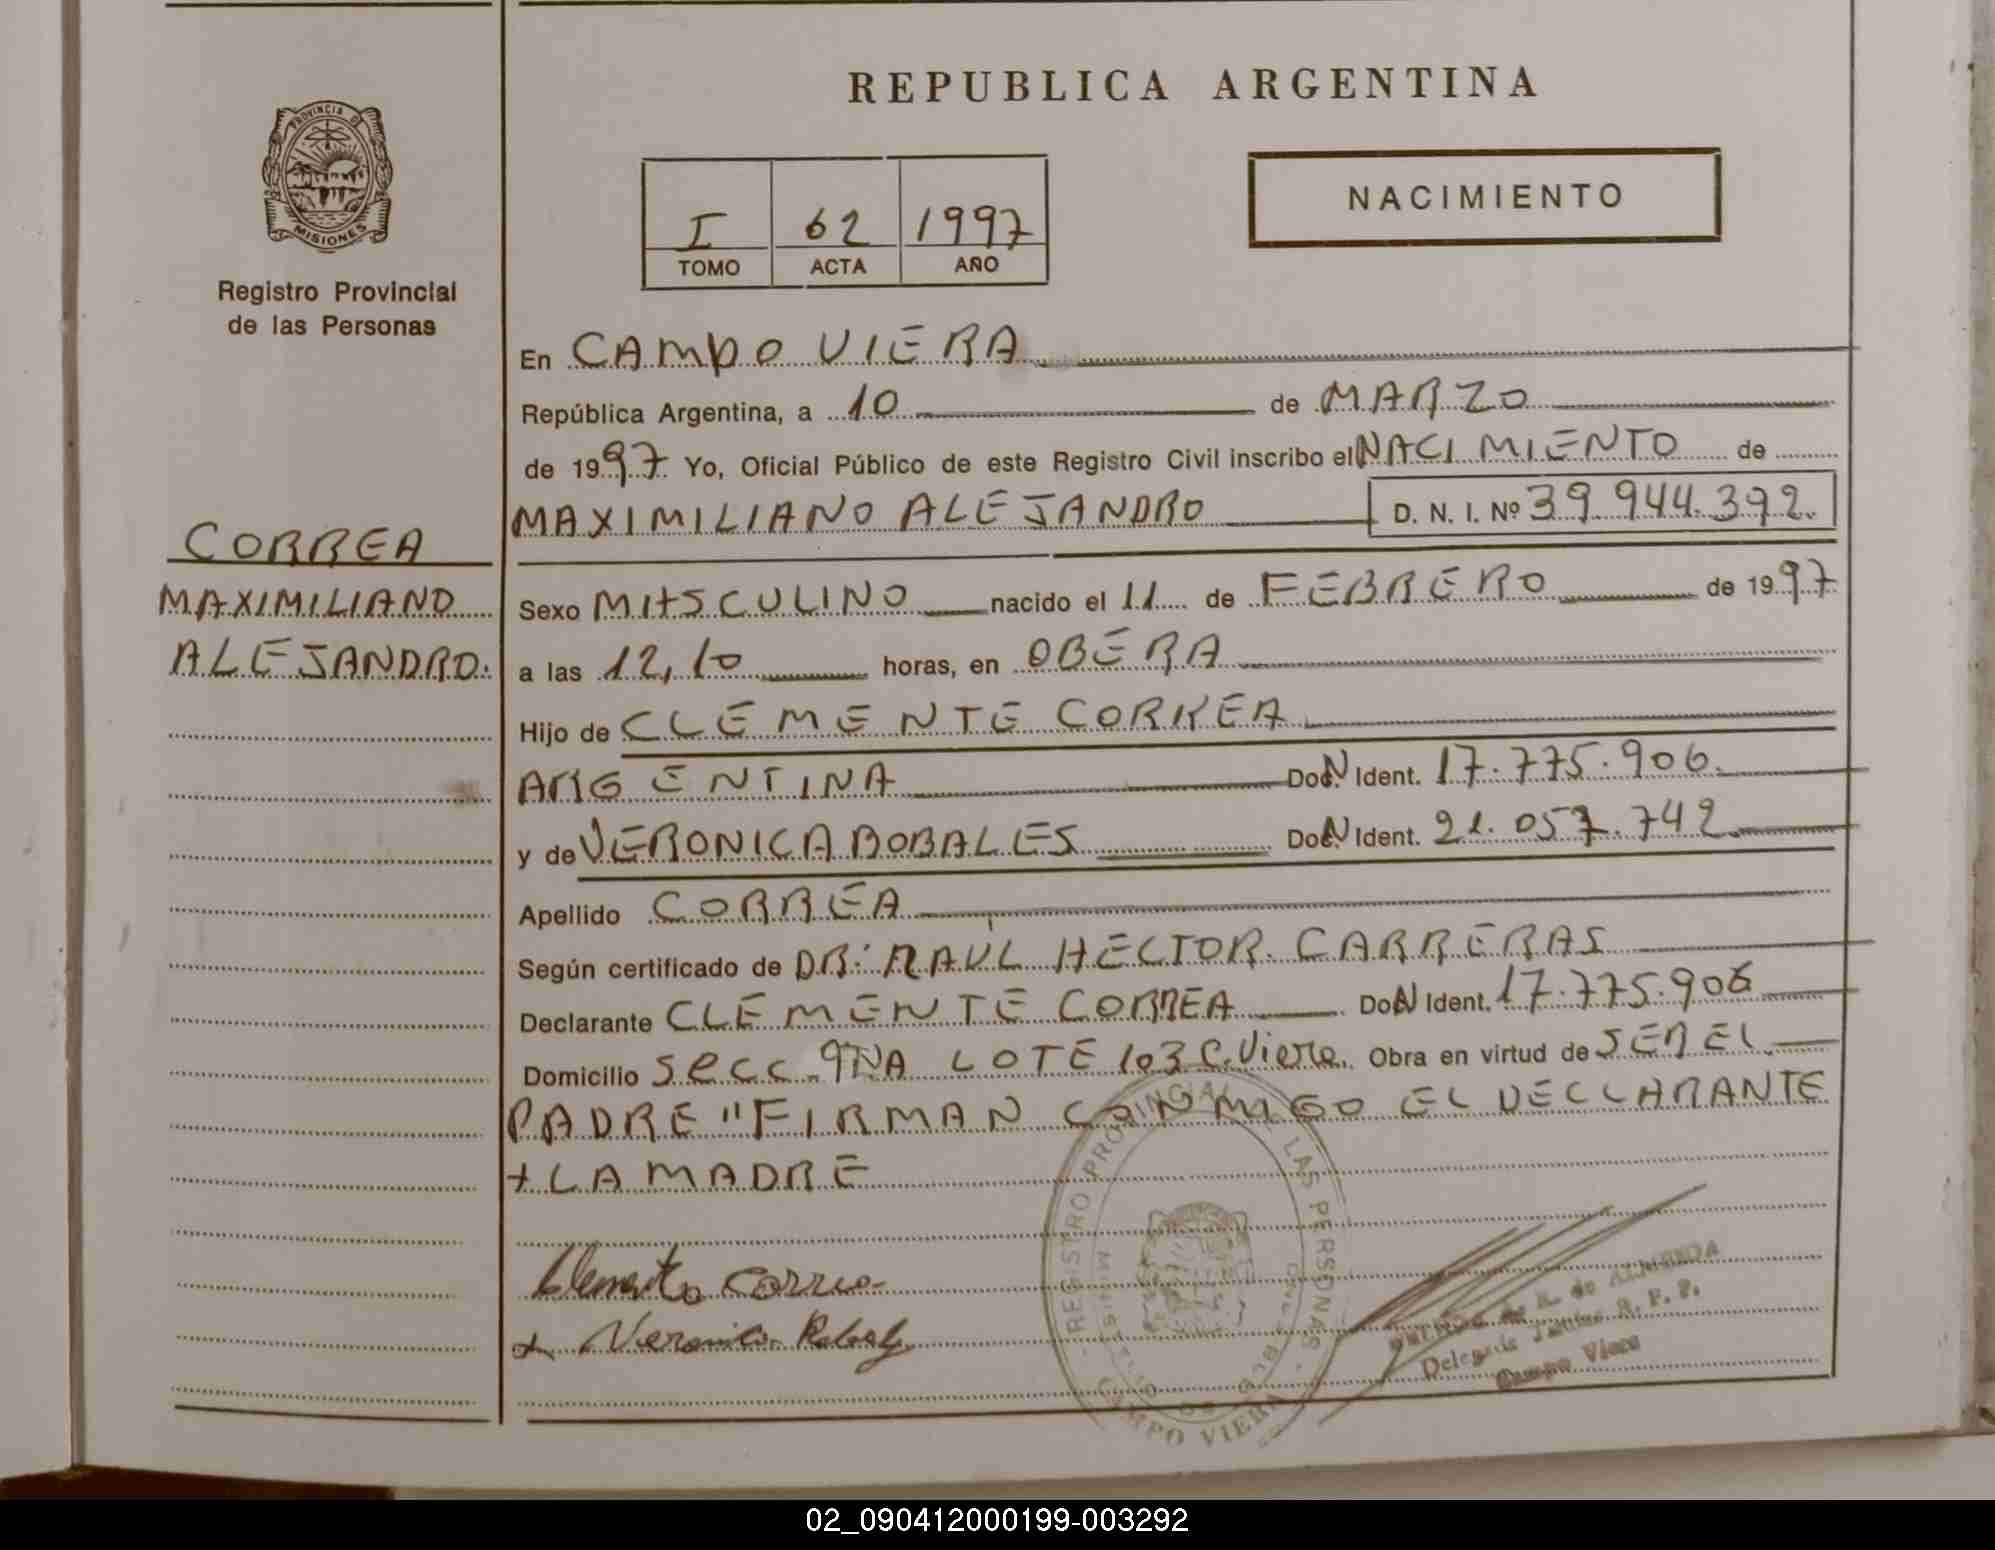 REPUBLICA ARGENTINA
PROVINCIA D
MISIONES
Registro Provincial
de las Personas
I 62 1997
TOMO ACTA AÑO
NACIMIENTO
En CAMPO VIERA
República Argentina, a 10 de MARZO
de 1997 Yo, Oficial Público de este Registro Civil inscribo el NACIMIENTO de
MAXIMILIANO ALEJANDRO D. N. I. Nº 39.944.392.
CORREA
MAXIMILIANO
ALEJANDRO.
Sexo MASCULINO nacido el 11 de FEBRERO de 1997
a las 12,10 horas, en OBERA
Hijo de CLEMENTE CORREA
ARGENTINA DocN Ident. 17.775.906.
y de VERONICA BOBALES DocN Ident. 21.057.742
Apellido CORREA
Según certificado de DR: RAUL HECTOR CARRERAS
Declarante CLEMENTE CORREA DocN Ident. 17.775.906
Domicilio Secc. 9NA LOTE 103 C. Viera. Obra en virtud de SER EL
PADRE "FIRMAN CONMIGO EL DECLARANTE
+ LA MADRE
REGISTRO PROVINCIAL LAS PERSONAS
MISIONES
CAMPO VIERA
Clemente Correa
+ Veronica
de ALMEIDA
Delegada R. P. P.
Campo Viera
02_090412000199-003292